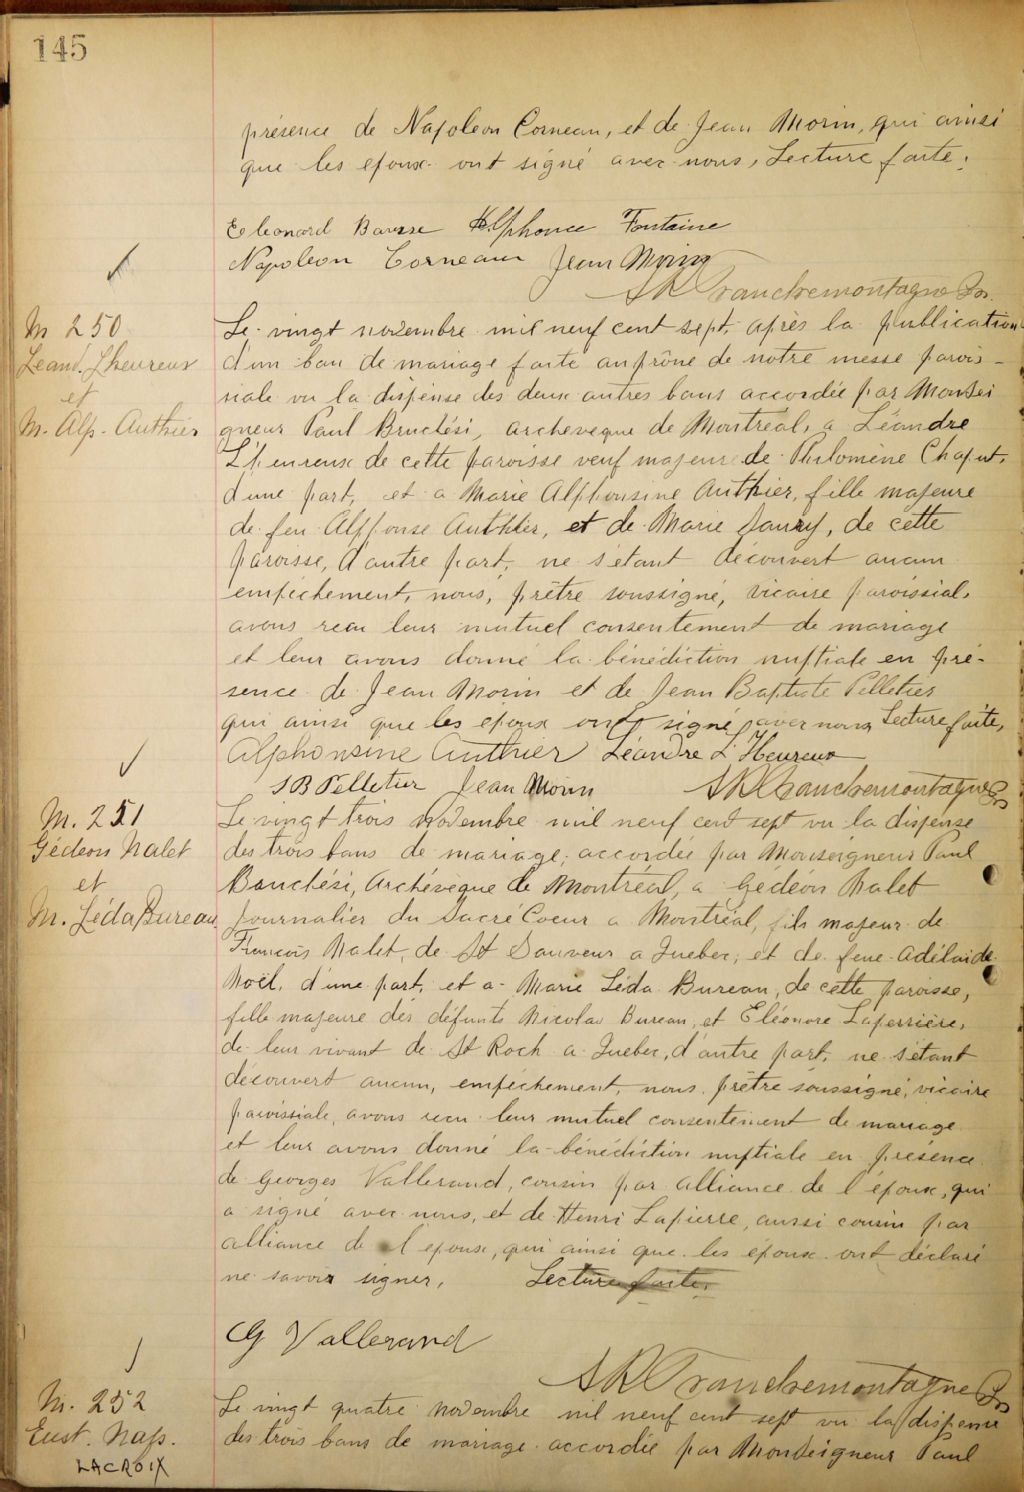 145
présence de Napoleon Corneau, et de Jean Morin, qui ainsi
que les epoux ont signé avec nous, Lecture faite.
Eleonard Alphonce Fontaine
Napoleon Corneau Jean Morin
A R Tranchemontagne
M 250
Leand. Lheureux
et
M. Alp. Authier
Le vingt novembre mil neuf cent sept, après la publication
d'un ban de mariage faite au prône de notre messe parois-
siale vu la dispense des deux autres bans accordée par Monsei
gneur Paul Bruchési, archeveque de Montreal, a Léandre
L'heureux de cette paroisse veuf majeur de Philomène Chaput,
d'une part, et a Marie Alphonsine Authier, fille majeure
de feu Alphonse Authier, et de Marie, de cette
paroisse, d'autre part, ne s'étant découvert aucun
empêchement, nous, prêtre soussigné, vicaire paroissial,
avons recu leur mutuel consentement de mariage
et leur avons donné la bénédiction nuptiale en pré-
sence de Jean Morin et de Jean Baptiste Pelletier
qui ainsi que les époux ont signé avec nous Lecture faite,
Alphonsine Authier Léandre L'Heureux
J B Pelletier Jean Morin A R Tranchemontagne
M. 251
Gédeon Nalet
et
M. Léda Bureau
Le vingt trois novembre mil neuf cent sept vu la dispense
des trois bans de mariage, accordée par Monseigneur Paul
Bruchési, Archévêque de Montréal, a Gédéon Nalet
journalier du Sacré Coeur a Montréal, fils majeur de
François Nalet, de St Sauveur a Quebec, et de feue Adélaide
Noël, d'une part, et a Marie Léda Bureau, de cette paroisse,
fille majeure des défunts Nicolas Bureau, et Eléonore Laferrière,
de leur vivant de St Roch a Quebec, d'autre part, ne s'étant
découvert aucun, empêchement, nous prêtre soussigné, vicaire
paroissiale, avons recu leur mutuel consentement de mariage
et leur avons donné la bénédiction nuptiale en présence
de Georges Vallerand, cousin par alliance de l'époux, qui
a signé avec nous, et de Henri Lapierre, aussi cousin par
alliance de l'epoux, qui ainsi que les époux ont déclaré
ne savoir signer. Lecture faite.
G Vallerand
A R Tranchemontagne
M. 252
Eust. Nap.
LACROIX
Le vingt quatre novembre mil neuf cent sept vu la dispense
des trois bans de mariage accordée par Monseigneur Paul